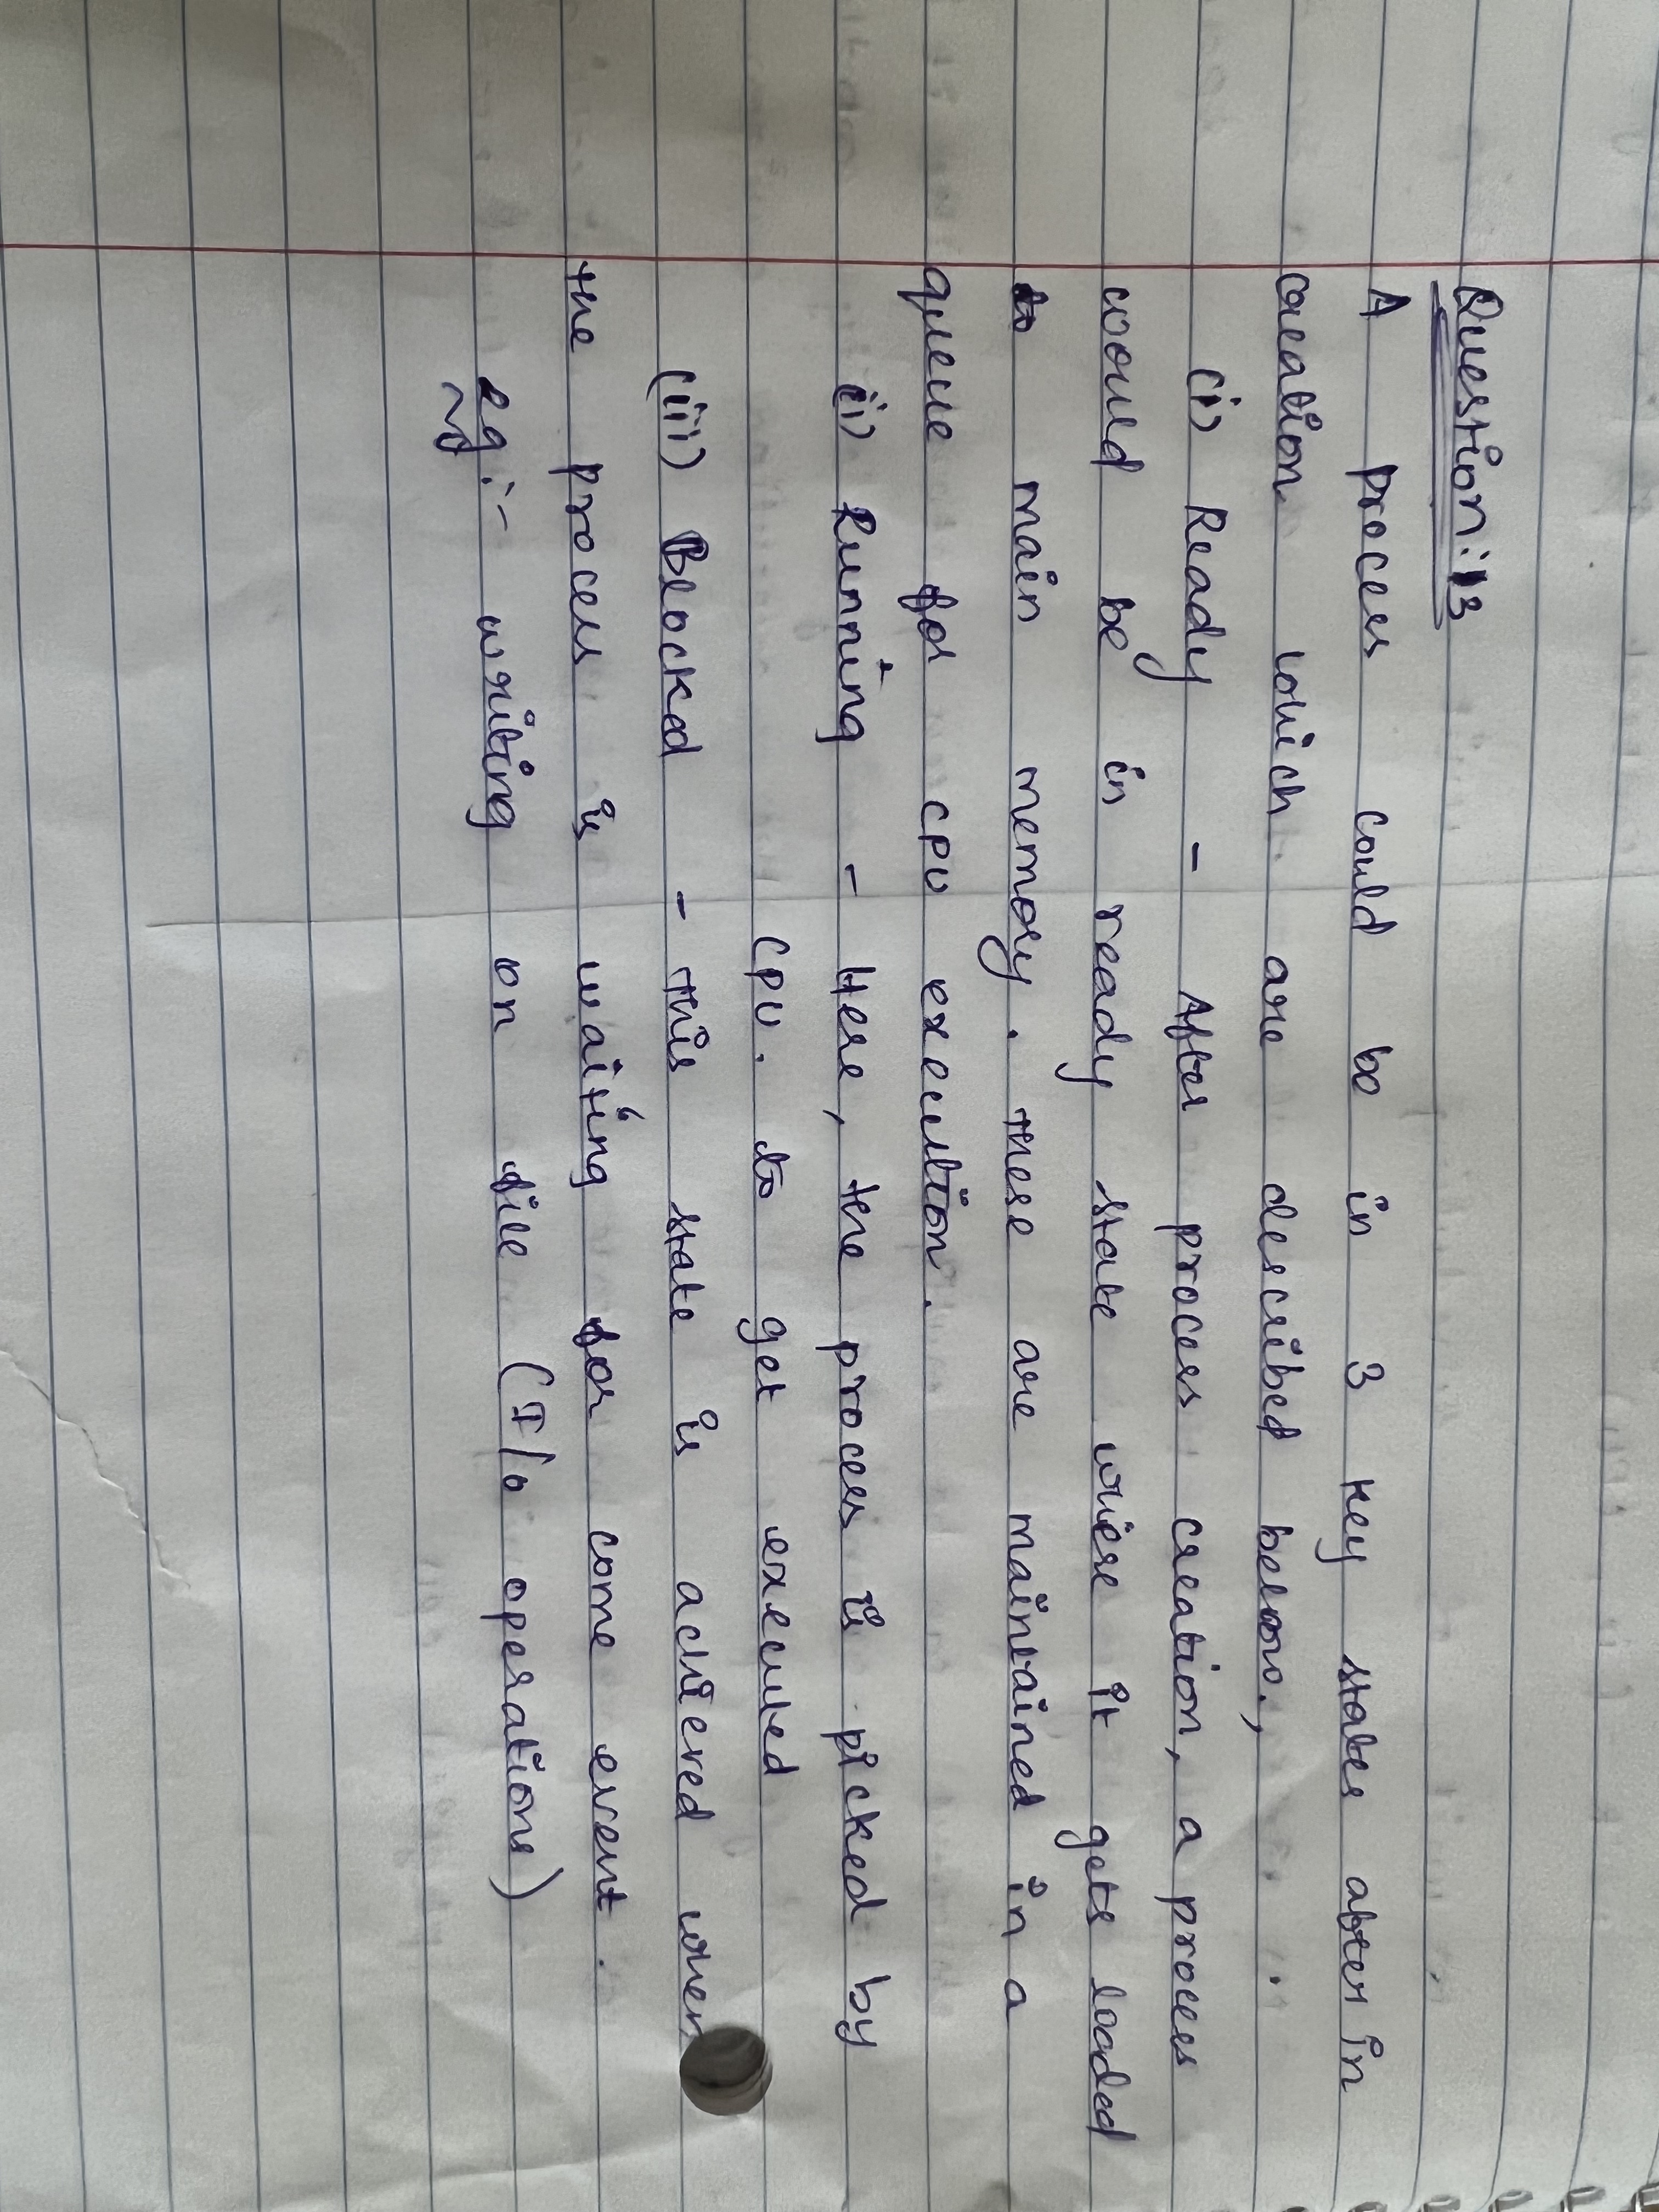 Question:13
A process could be in 3 key states after in
creation which are described below.,
(i) Ready - After process creation, a process
would be in ready state where it gets loaded
to main memory. These are maintained in a
queue for CPU execution.
ii) Running - Here, the process is picked by
CPU. to get executed
(iii) Blocked - This state is achieved when
the process is waiting for come event.
eg:- writing on file (I/O operations)